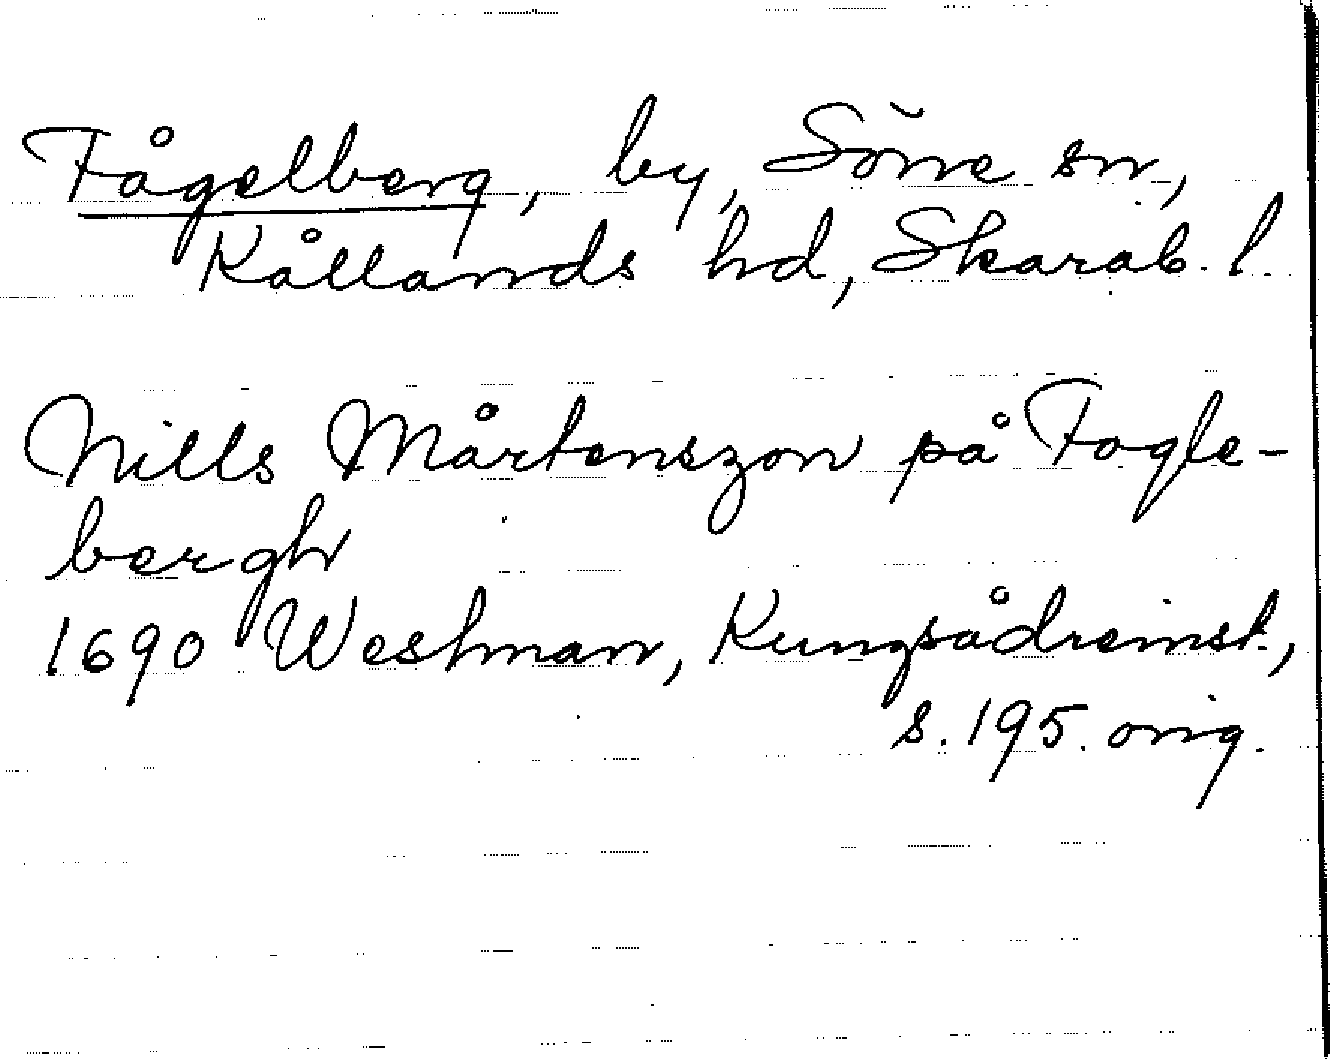 Fågelberg, by, Söne sn,
Kållands hd, Skarab. l.
Nills Mårtenszon på Fogle-
bergh
1690 Westman, Kungsådreinst.,
s. 195. orig.